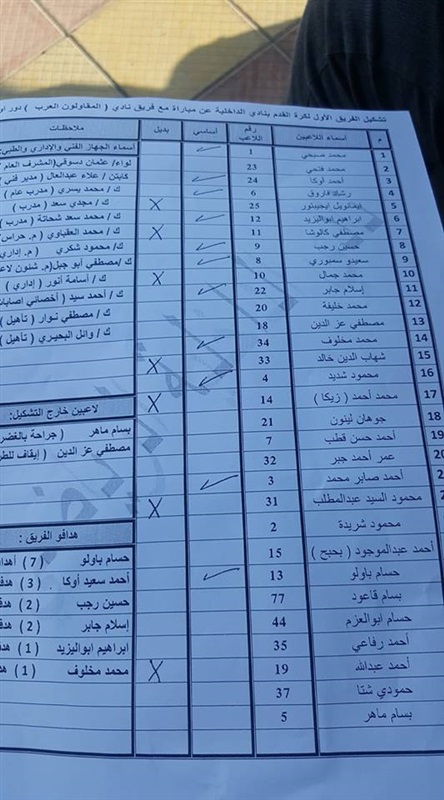 تشكيل الفريق الأول لكرة القدم بنادي الداخلية عن مباراة مع فريق نادي ( المقاولون العرب ) دور
م أسماء اللاعبين رقم اللاعب أساسي بديل ملاحظات
1 محمد صبحي 1 أسماء الجهاز الفني والإداري والطبي:
2 محمد فتحي 23 لواء/ عثمان دسوقي(المشرف العام
3 أحمد أوكا 24 كابتن / علاء عبدالعال ( مدير فني )
4 رشاد فاروق 6 ك / محمد يسري ( مدرب عام )
5 25 X ك / مجدي سعد ( مدرب )
6 ابراهيم ابواليزيد 12 ك / محمد سعد شحاتة ( مدرب )
7 مصطفي كالوشا 11 X ك / محمد العقباوي ( م. حراس
8 حسين رجب 9 ك/ محمود شكري ( م. إداري
9 سعيدو سمبوري 8 ك /مصطفي أبو جبل(م. شئون لاعب
10 محمد جمال 10 X ك / أسامة أنور ( إداري )
11 إسلام جابر 22 ك / أحمد سيد ( أخصائي إصابات
12 محمد خليفة 20 ك / مصطفي نوار ( تأهيل )
13 مصطفي عز الدين 18 ك / وائل البحيري ( تأهيل )
14 محمد مخلوف 34
15 شهاب الدين خالد 33 X
16 محمود شديد 4
17 محمد أحمد ( زيكا ) 14 X لاعبين خارج التشكيل:
18 جوهان لينون 21 بسام ماهر ( جراحة بالغضر
19 أحمد حسن قطب 7 مصطفي عز الدين ( إيقاف
20 عمر أحمد جبر 32
2 أحمد صابر محمد 3
محمود السيد عبدالمطلب 31 X
محمود شريدة 2 هدافو الفريق :
أحمد عبدالموجود ( بحبح ) 15 حسام باولو ( 7 ) أهدا
حسام باولو 13 أحمد سعيد أوكا ( 3 ) هدف
بسام قاعود 77 حسين رجب ( 2 ) هدف
حسام ابوالعزم 44 إسلام جابر ( 2 ) هدف
أحمد رفاعي 35 ابراهيم ابواليزيد ( 1 ) هد
أحمد عبدالله 19 X محمد مخلوف ( 1 ) هد
حمودي شتا 37
بسام ماهر 5